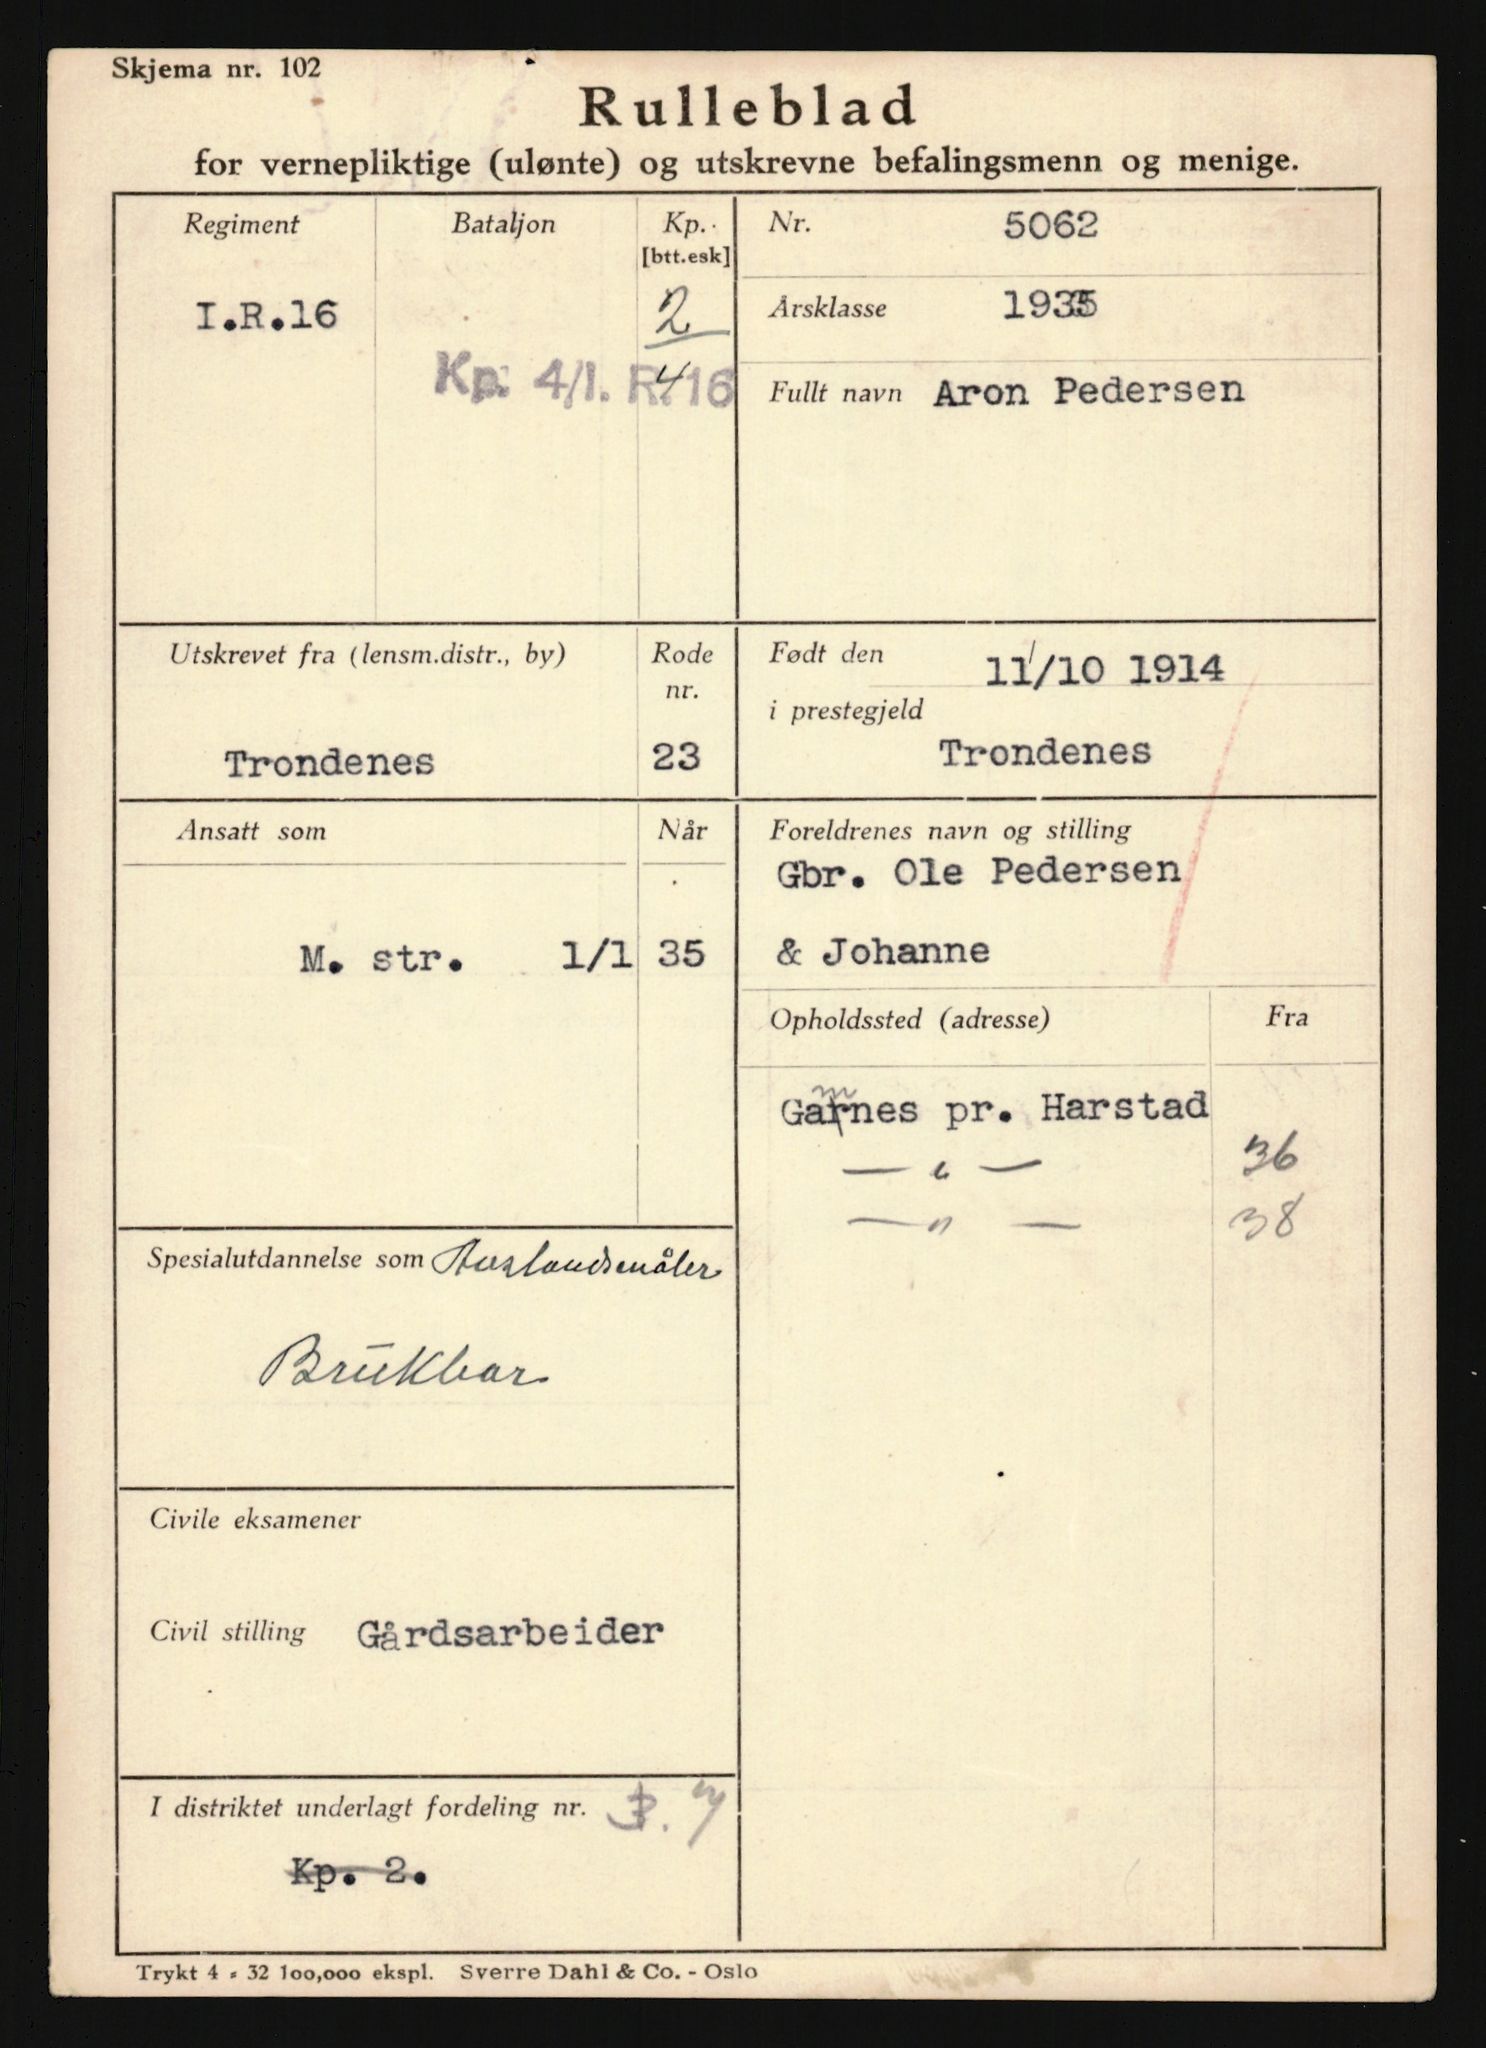 Skjema nr. 102
Rulleblad
for vernepliktige (ulønte) og utskrevne befalingsmenn og menige.
Regiment
Bataljon
Kp.
[btt.esk]
I.R.16
2
Kp. 4/I. R. 16
4
Nr. 5062
Årsklasse 1935
Fullt navn Aron Pedersen
Utskrevet fra (lensm.distr., by)
Rode
nr.
Trondenes 23
Født den 11/10 1914
i prestegjeld
Trondenes
Ansatt som
Når
M. str. 1/1 35
Foreldrenes navn og stilling
Gbr. Ole Pedersen
& Johanne
Opholdssted (adresse)
Fra
Gamnes pr. Harstad
— " — 36
— " — 38
Spesialutdannelse som Avstandsmåler
Brukbar
Civile eksamener
Civil stilling Gårdsarbeider
I distriktet underlagt fordeling nr.
Kp. 2.
Trykt 4 - 32 100,000 ekspl. Sverre Dahl & Co. - Oslo